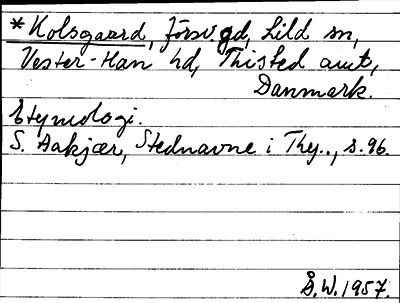 *Kolsgaard, försv. gd, Lild sn,
Vester-Han hd, Thisted amt,
Danmark.
Etymologi.
S. Aakjær, Stednavne i Thy.., s. 96.
S.W. 1957.